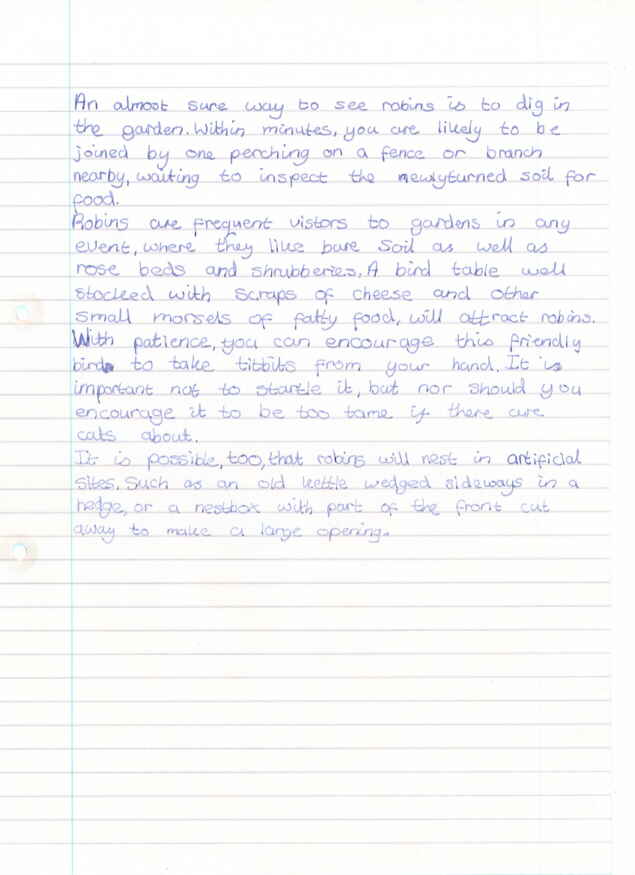 An almost sure way to see robins is to dig in
the garden. Within minutes, you are likely to be
joined by one perching on a fence or branch
nearby, waiting to inspect the newlyturned soil for
food.
Robins are frequent vistors to gardens in any
event, where they like bare soil as well as
rose beds and shrubberies. A bird table well
stocked with scraps of cheese and other
small morsels of fatty food, will attract robins.
With patience, you can encourage this friendly
bird to take titbits from your hand. It is
important not to startle it, but nor should you
encourage it to be too tame if there are
cats about.
It is possible, too, that robins will nest in artificial
sites. Such as an old kettle wedged sideways in a
hedge, or a nestbox with part of the front cut
away to make a large opening.